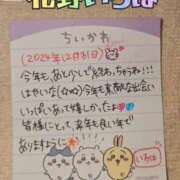 花野いろは
ちいかわ
(2024年12月31日)
今年も、あと少しで終わっちゃうね!!!
はやいな(☆o☆) 今年も素敵な出会い
いっぱいあって嬉しかったよ
皆様にとって、来年も良い年で
ありますように
いろは